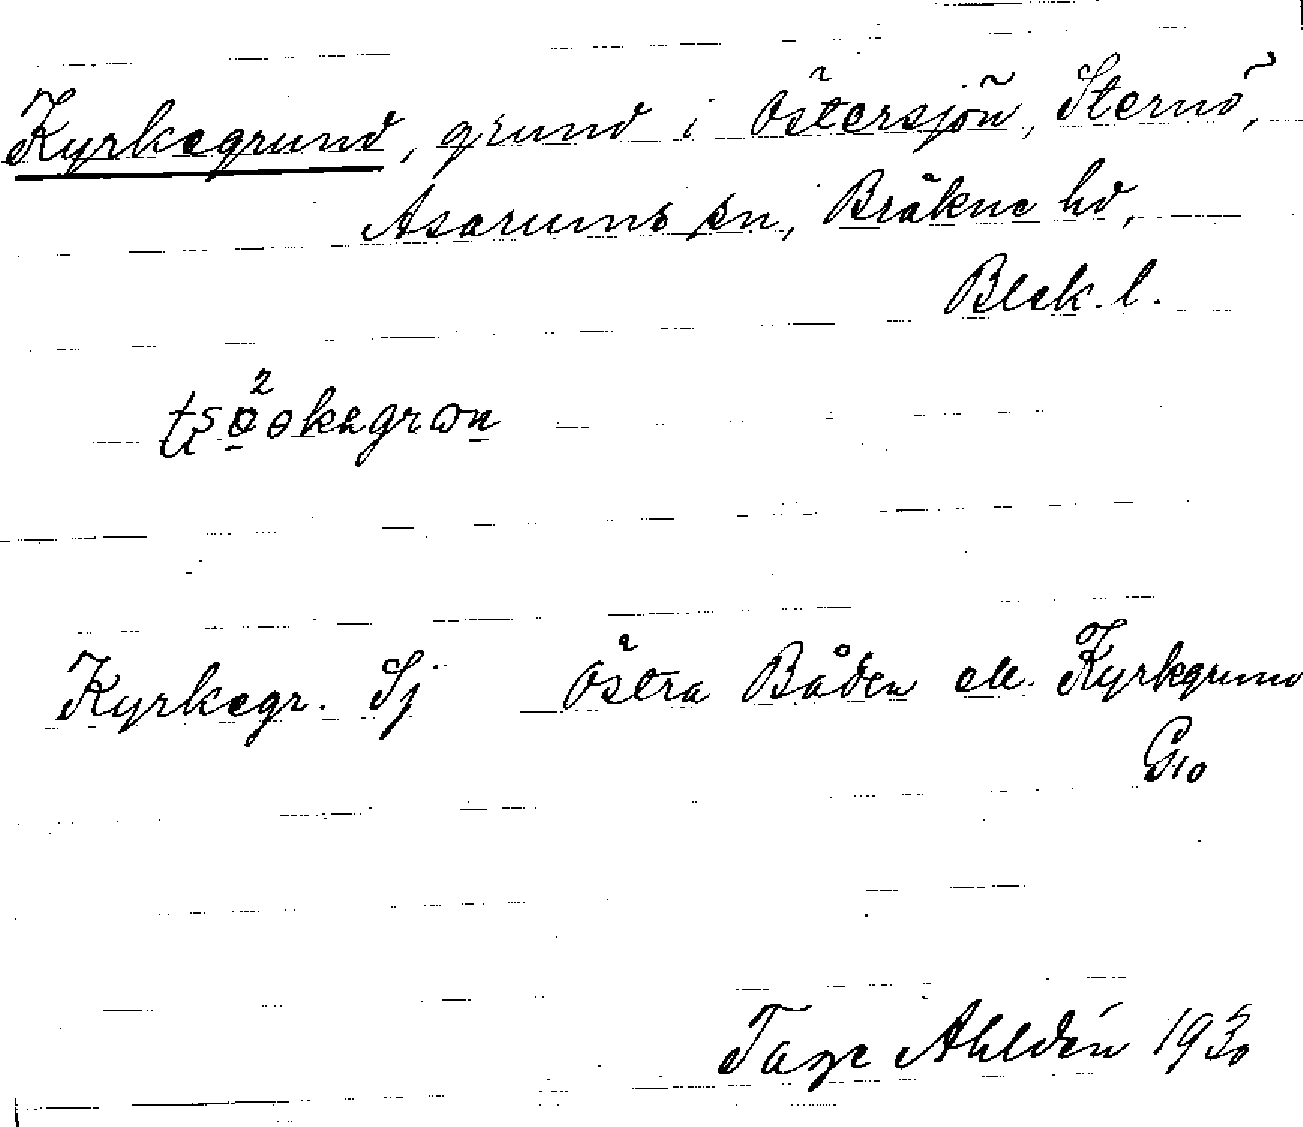 Kyrkegrund, grund i Östersjön, Sternö,
Asarums sn, Bräkne hd,
Blek. l.
Kyrkegr. Sj Östra Båden ell. Kyrkgrund
G10
Tage Ahldén 1930